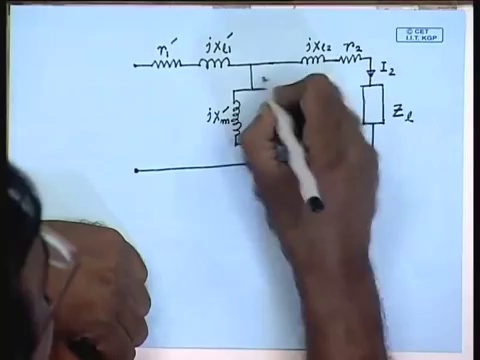 © CET
I.I.T. KGP
r₁′ jxℓ₁′ jxℓ₂ r₂
I₂
jxm′
Zℓ